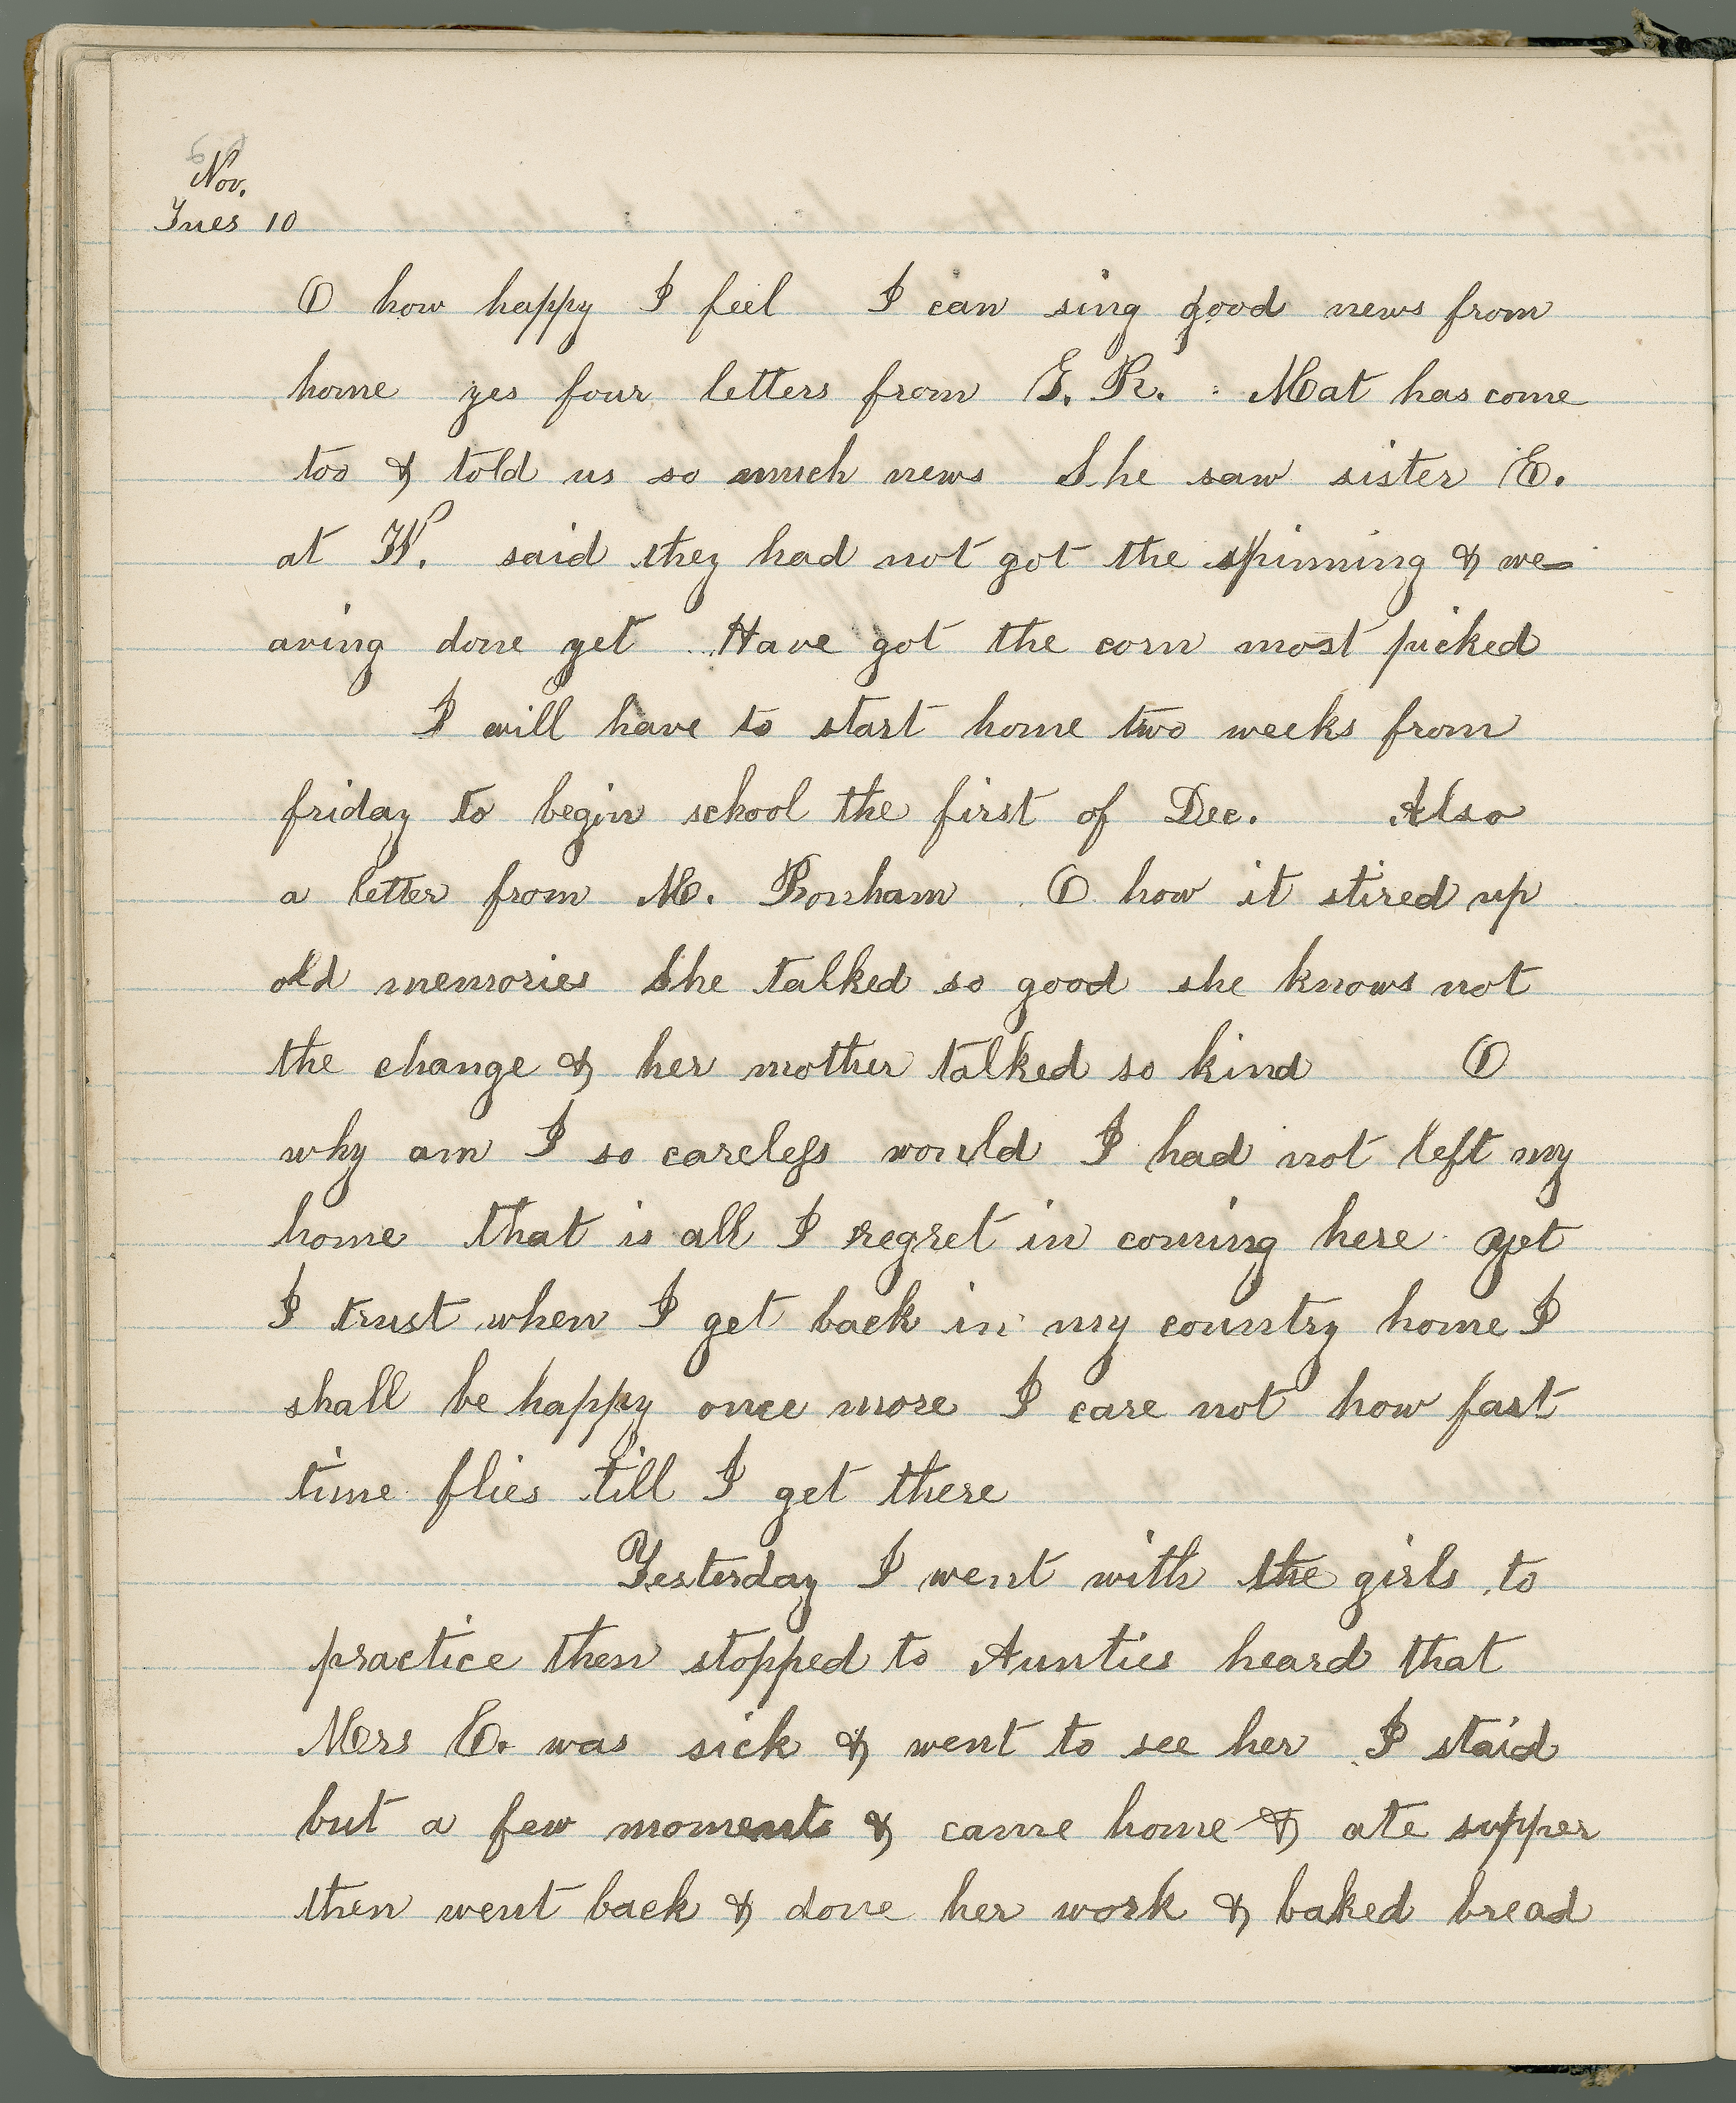 Nov.
Tues 10
O how happy I feel I can sing good news from
home yes four letters from G. R. : Mat has come
too & told us so much news She saw sister E.
at W. said they had not got the spinning & we-
aving done yet Have got the corn most picked
I will have to start home two weeks from
friday to begin school the first of Dec. Also
a letter from M. Bonham O how it stired up
old memories She talked so good she knows not
the change & her mother talked so kind O
why am I so careless would I had not left my
home that is all I regret in coming here yet
I trust when I get back in my country home I
shall be happy once more I care not how fast
time flies till I get there
Yesterday I went with the girls to
practice then stopped to Aunties heard that
Mrs E. was sick & went to see her I staid
but a few moments & came home & ate supper
then went back & done her work & baked bread